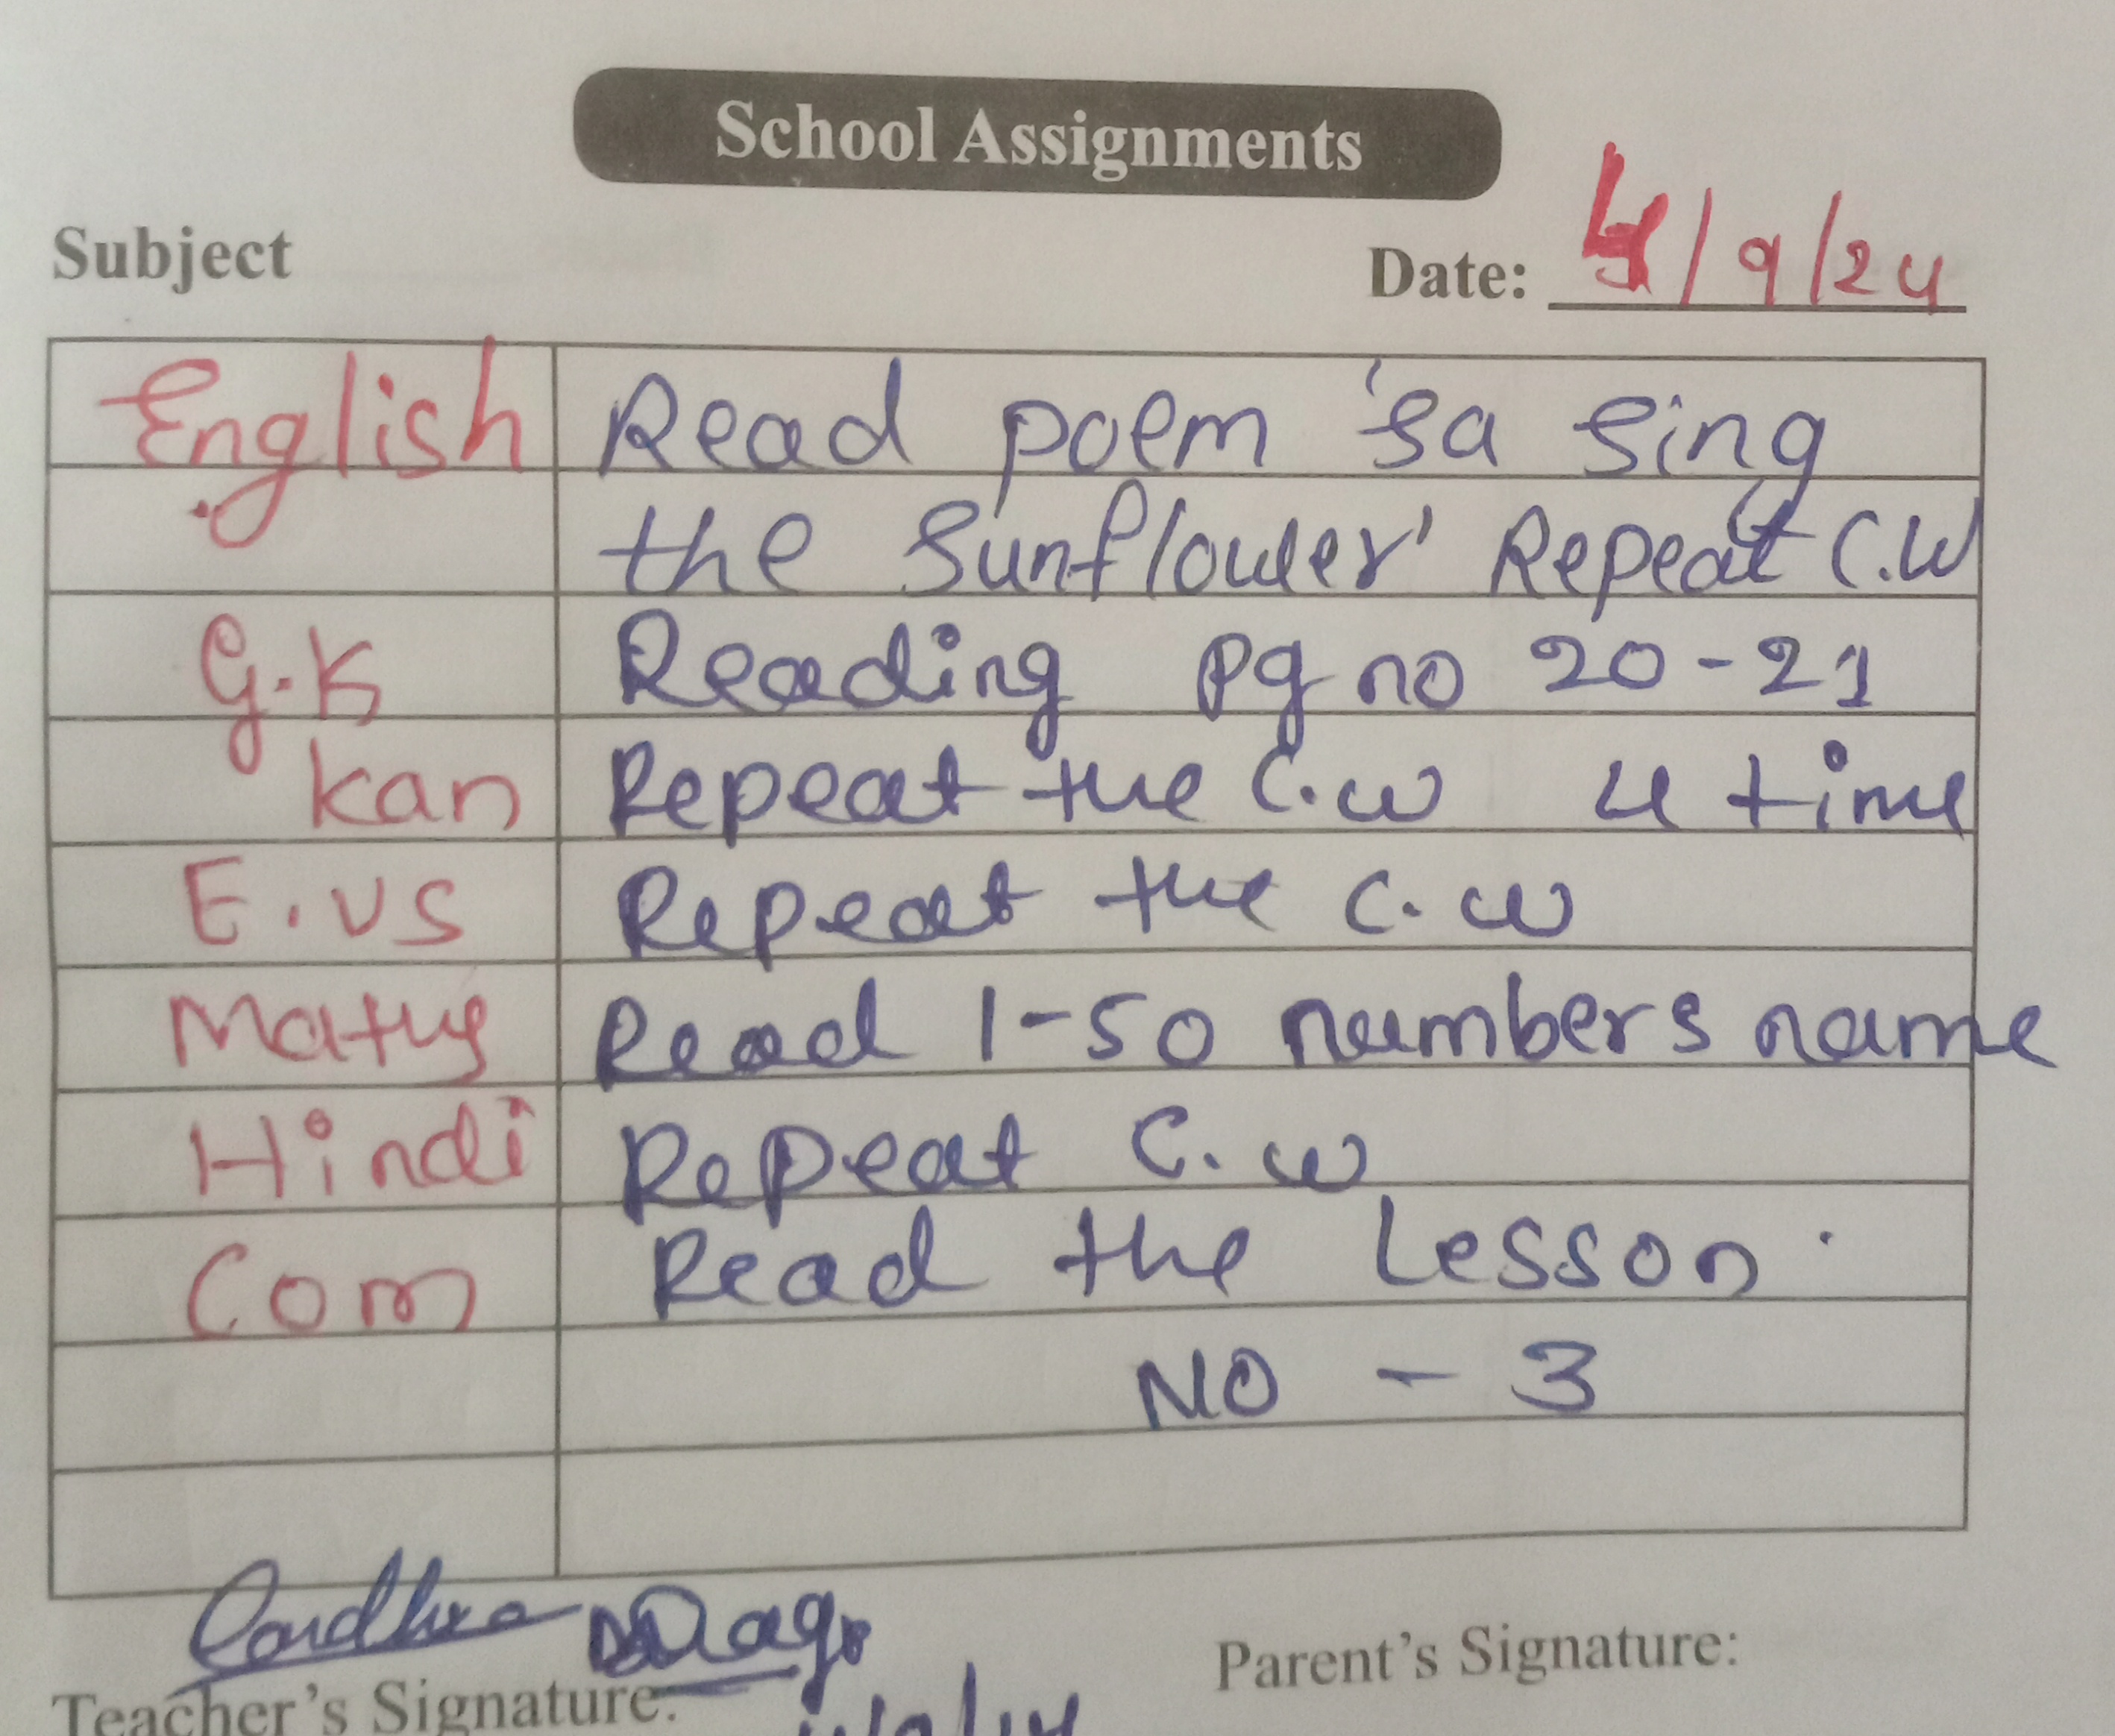 School Assignments
Subject
Date: 4/9/24
English Read poem 'sa sing
the Sunflower' Repeat C.W
G.K Reading pg no 20-21
kan Repeat the C.W 4 time
E.VS Repeat the C.W
Maths Read 1-50 numbers name
Hindi Repeat C.W
Com Read the Lesson.
NO - 3
Teacher's Signature:
Parent's Signature: